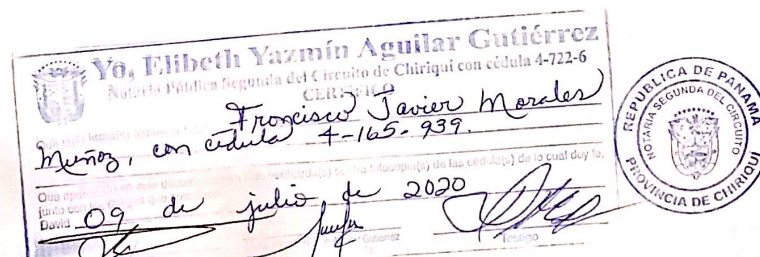 Yo, Elibeth Yazmín Aguilar Gutiérrez
Notaria Pública Segunda del Circuito de Chiriquí con cédula 4-722-6
CERTIFICO
Francisco Javier Morales
Muñoz, con cédula 4-165-939.
Que
en este documento
cédula(s) de lo cual doy fe,
junto con
David 09 de julio de 2020
Testigo
REPUBLICA DE PANAMA
NOTARIA SEGUNDA DEL CIRCUITO
PROVINCIA DE CHIRIQUI